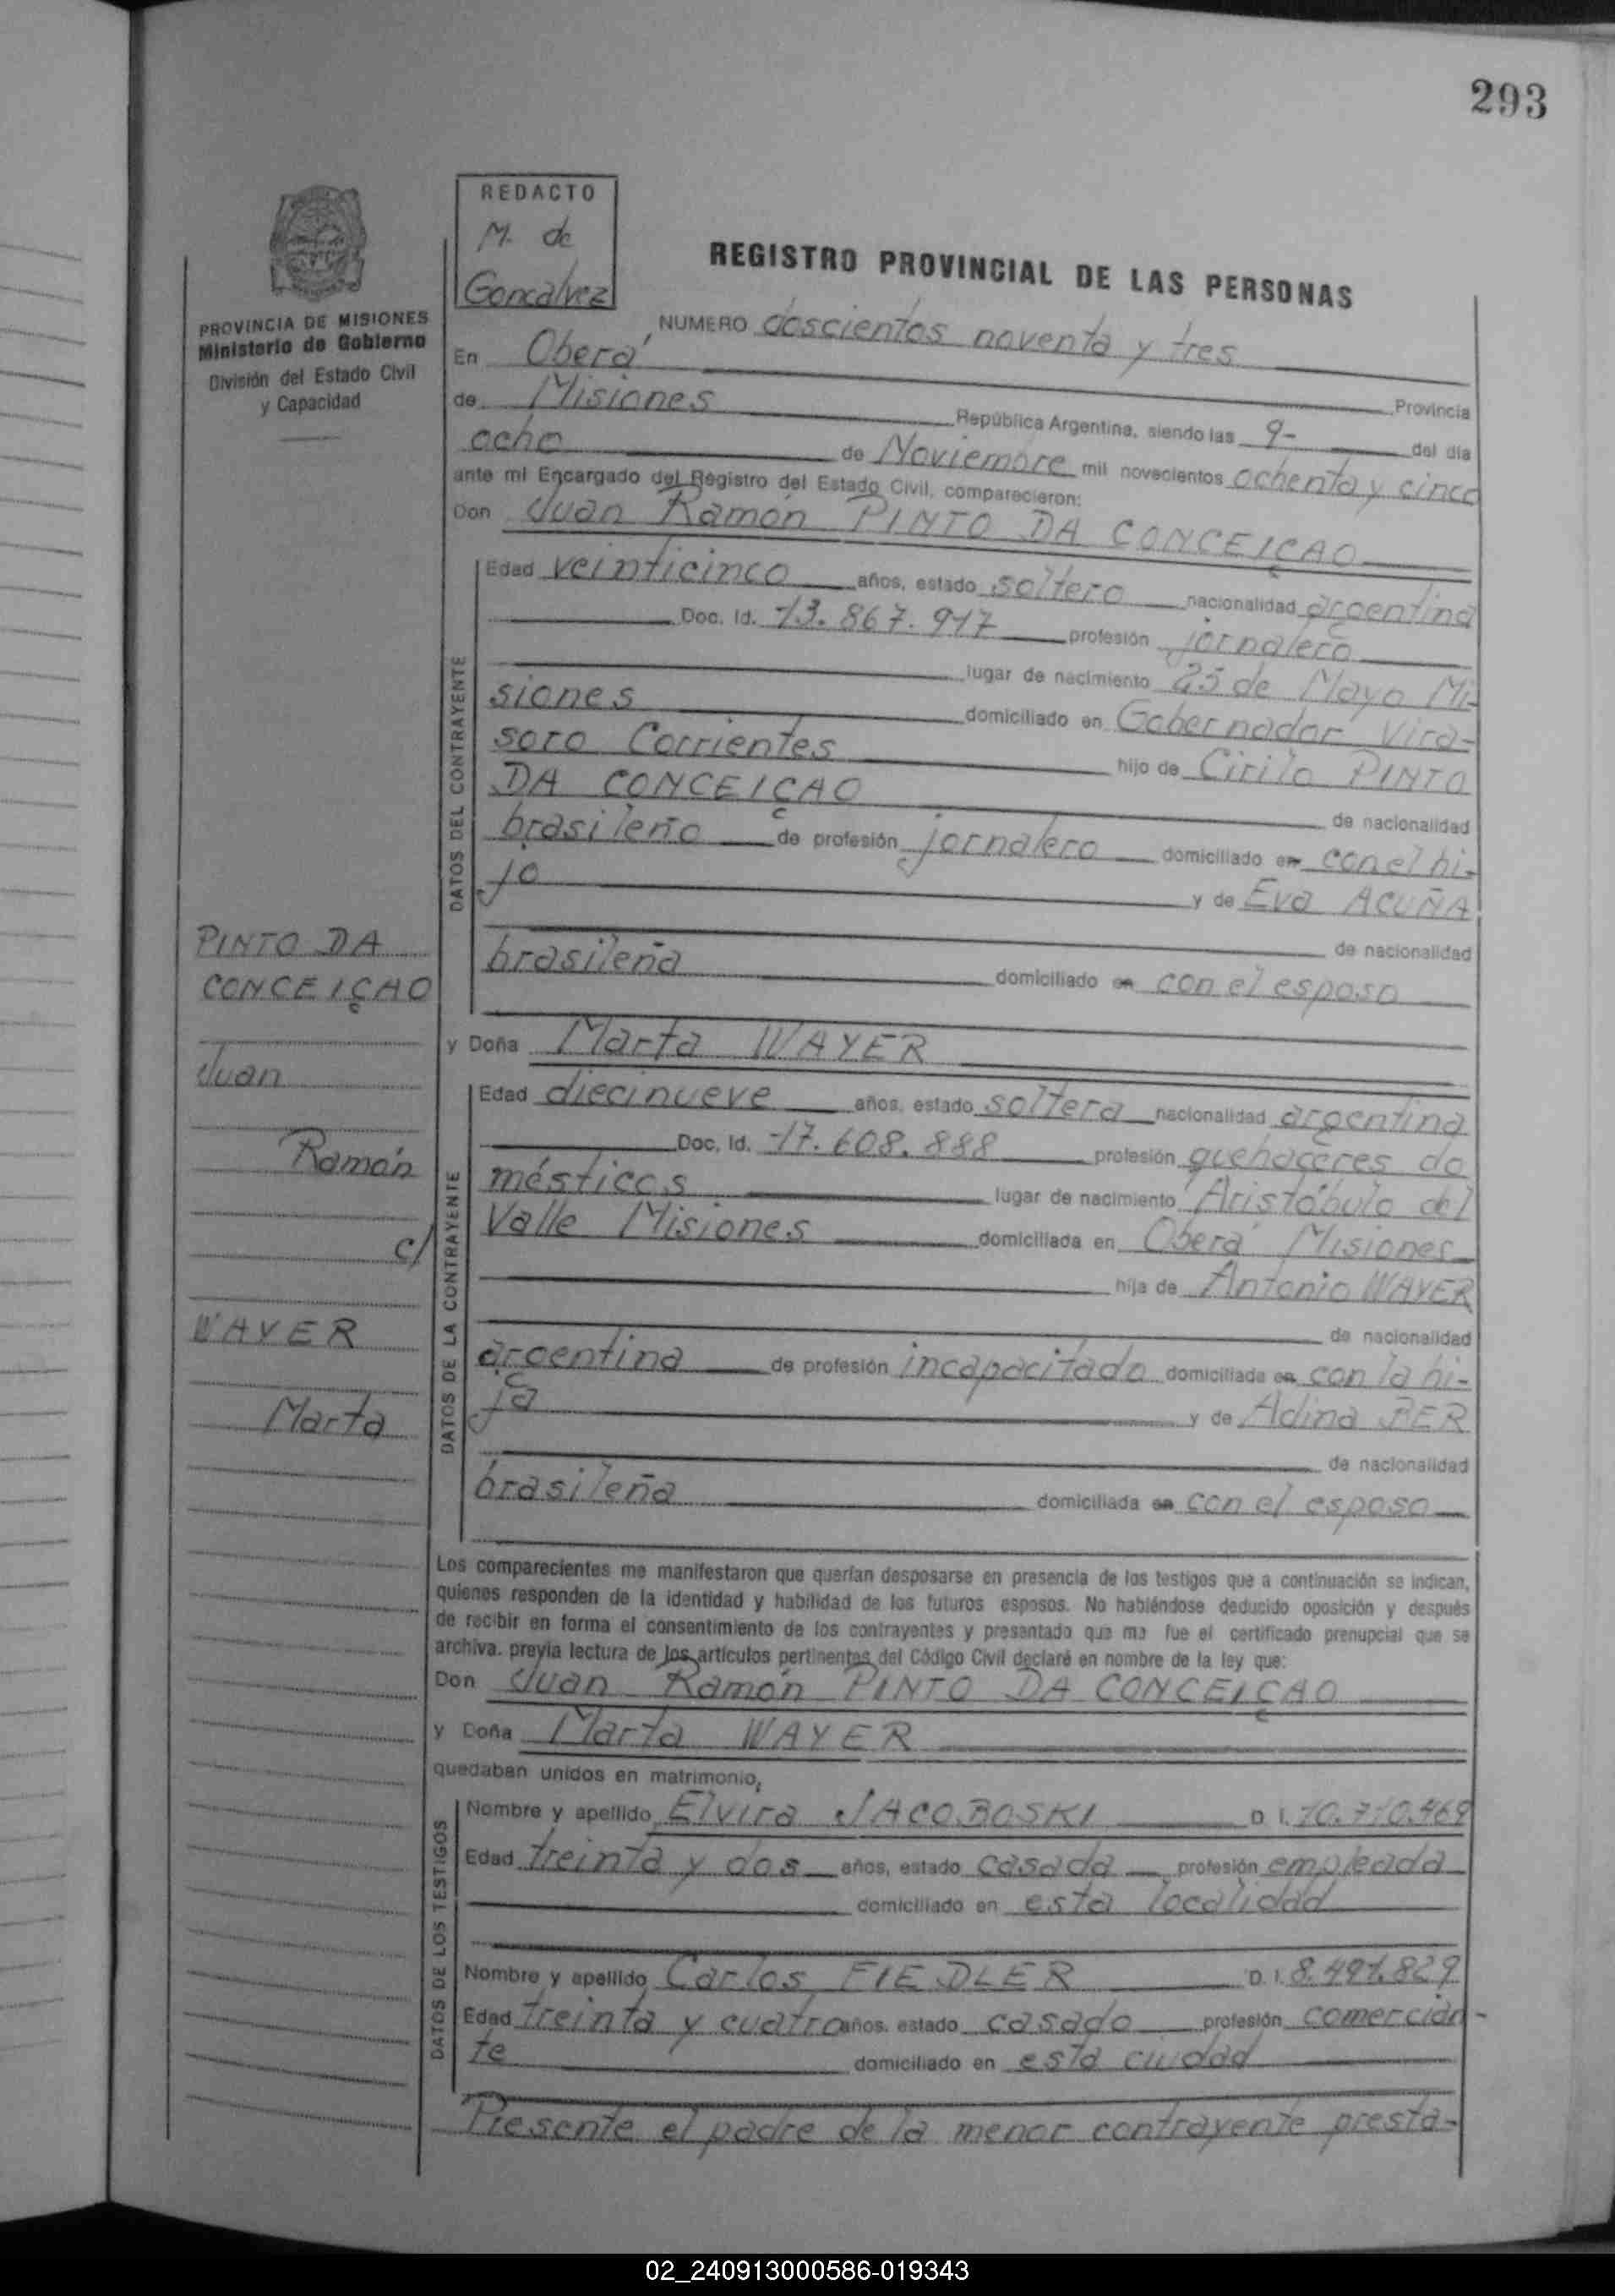 293
REDACTO
M. de
Goncalvez
PROVINCIA DE MISIONES
Ministerio de Gobierno
División del Estado Civil
y Capacidad
REGISTRO PROVINCIAL DE LAS PERSONAS
NUMERO doscientos noventa y tres
En Oberá Provincia
de Misiones República Argentina, siendo las 9- del día
ocho de Noviembre mil novecientos ochenta y cinco
ante mi Encargado del Registro del Estado Civil, comparecieron:
Don Juan Ramón PINTO DA CONCEIÇAO
DATOS DEL CONTRAYENTE
Edad veinticinco años, estado soltero nacionalidad argentina
Doc. Id. 13.867.917 profesión jornalero
lugar de nacimiento 25 de Mayo Mi-
siones domiciliado en Gobernador Vira-
soro Corrientes hijo de Cirilo PINTO
DA CONCEIÇAO de nacionalidad
brasileño de profesión jornalero domiciliado en con el hi-
jo y de Eva ACUÑA
de nacionalidad
brasileña domiciliado en con el esposo
y Doña Marta WAYER
DATOS DE LA CONTRAYENTE
Edad diecinueve años, estado soltera nacionalidad argentina
Doc. Id. 17.608.888 profesión quehaceres do
mésticos lugar de nacimiento Aristóbulo del
Valle Misiones domiciliada en Oberá Misiones
hija de Antonio WAYER
de nacionalidad
argentina de profesión incapacitado domiciliada en con la hi-
ja y de Adina BER
de nacionalidad
brasileña domiciliada en con el esposo
PINTO DA
CONCEIÇAO
Juan
Ramón
c/
WAYER
Marta
Los comparecientes me manifestaron que querían desposarse en presencia de los testigos que a continuación se indican,
quienes responden de la identidad y habilidad de los futuros esposos. No habiéndose deducido oposición y después
de recibir en forma el consentimiento de los contrayentes y presentado que me fue el certificado prenupcial que se
archiva. previa lectura de los artículos pertinentes del Código Civil declaré en nombre de la ley que:
Don Juan Ramón PINTO DA CONCEIÇAO
y Doña Marta WAYER
quedaban unidos en matrimonio,
DATOS DE LOS TESTIGOS
Nombre y apellido Elvira JACOBOSKI D. I. 10.710.469
Edad treinta y dos años, estado casada profesión empleada
domiciliado en esta localidad
Nombre y apellido Carlos FIEDLER D. I. 8.491.829
Edad treinta y cuatro años, estado casado profesión comercian-
te domiciliado en esta ciudad
Presente el padre de la menor contrayente presta-
02_240913000586-019343